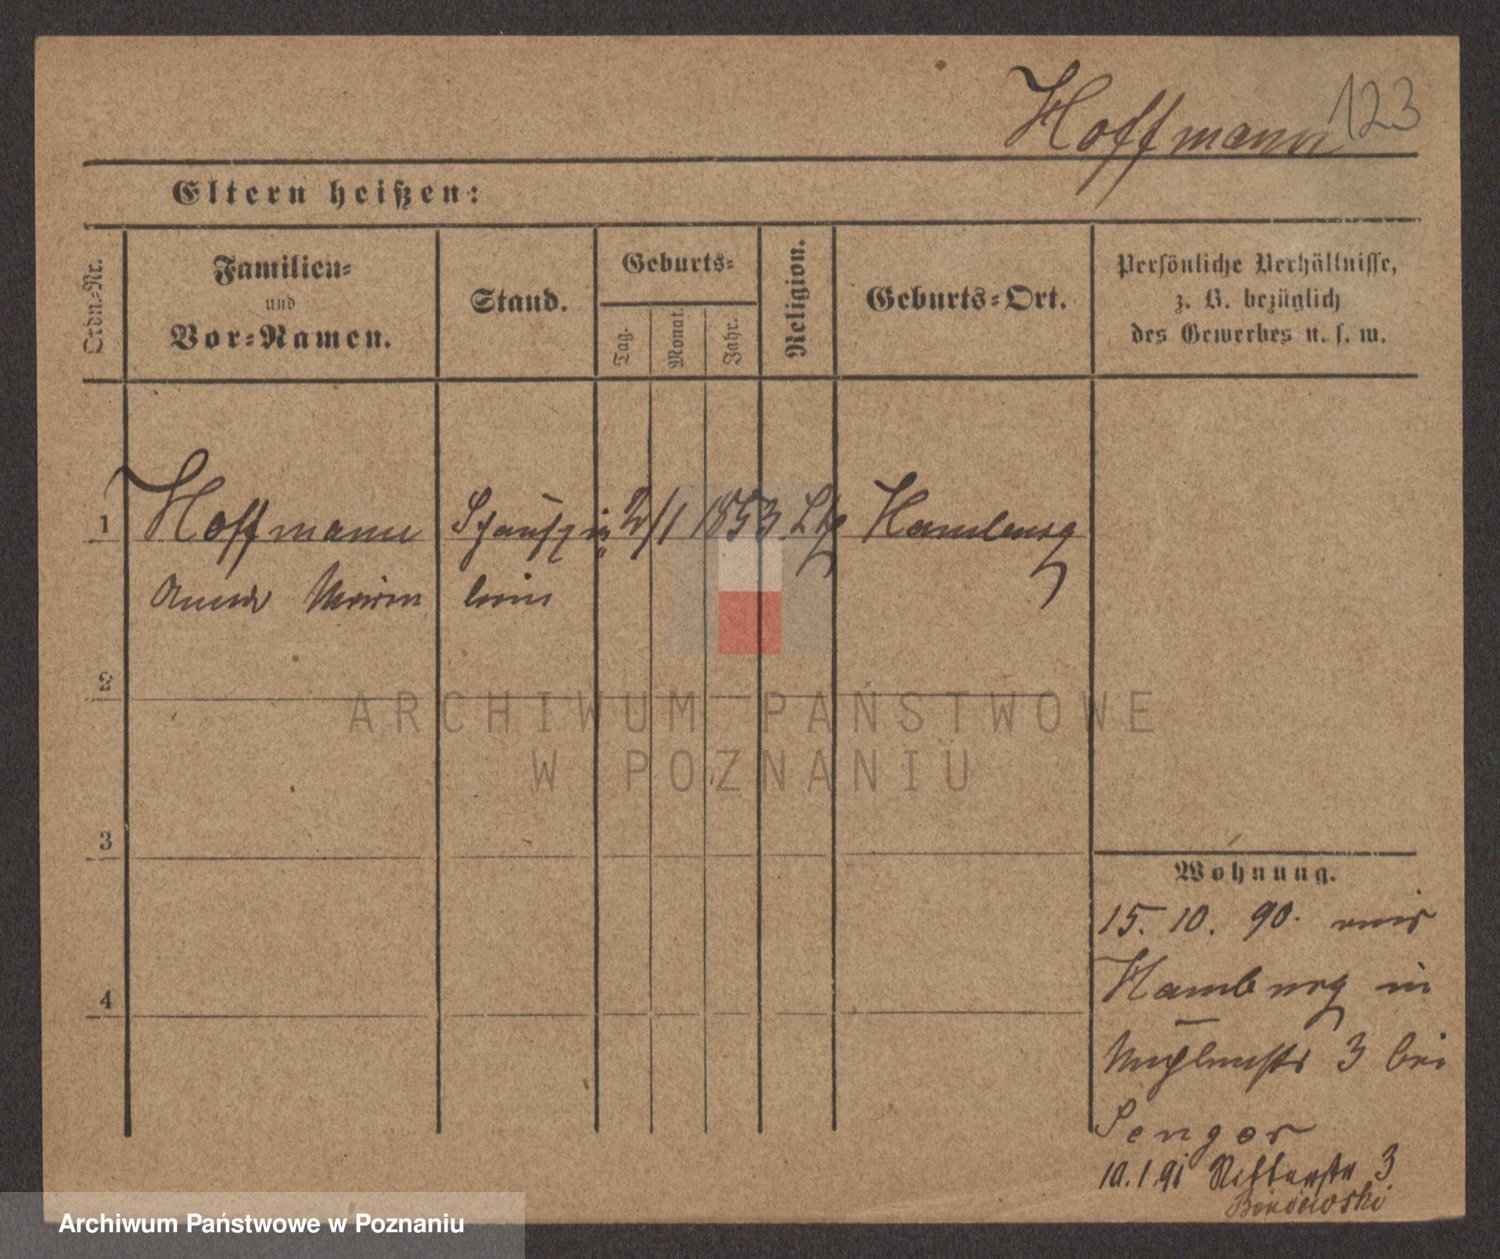 Hoffmann 123
Eltern heißen:
Ordn.-Nr.
Familien-
und
Vor-Namen.
Stand.
Geburts-
Tag.
Monat.
Jahr.
Religion.
Geburts-Ort.
Persönliche Verhältnisse,
z. B. bezüglich
des Gewerbes u. s. w.
1 Hoffmann Schausp 2/1 1853 Hamburg
Anna
2
ARCHIWUM PAŃSTWOWE
W POZNANIU
3
4
Wohnung.
15. 10. 90. aus
Hamburg in
3 bei
Senger
10.1.91 Ritterstr 3
Archiwum Państwowe w Poznaniu